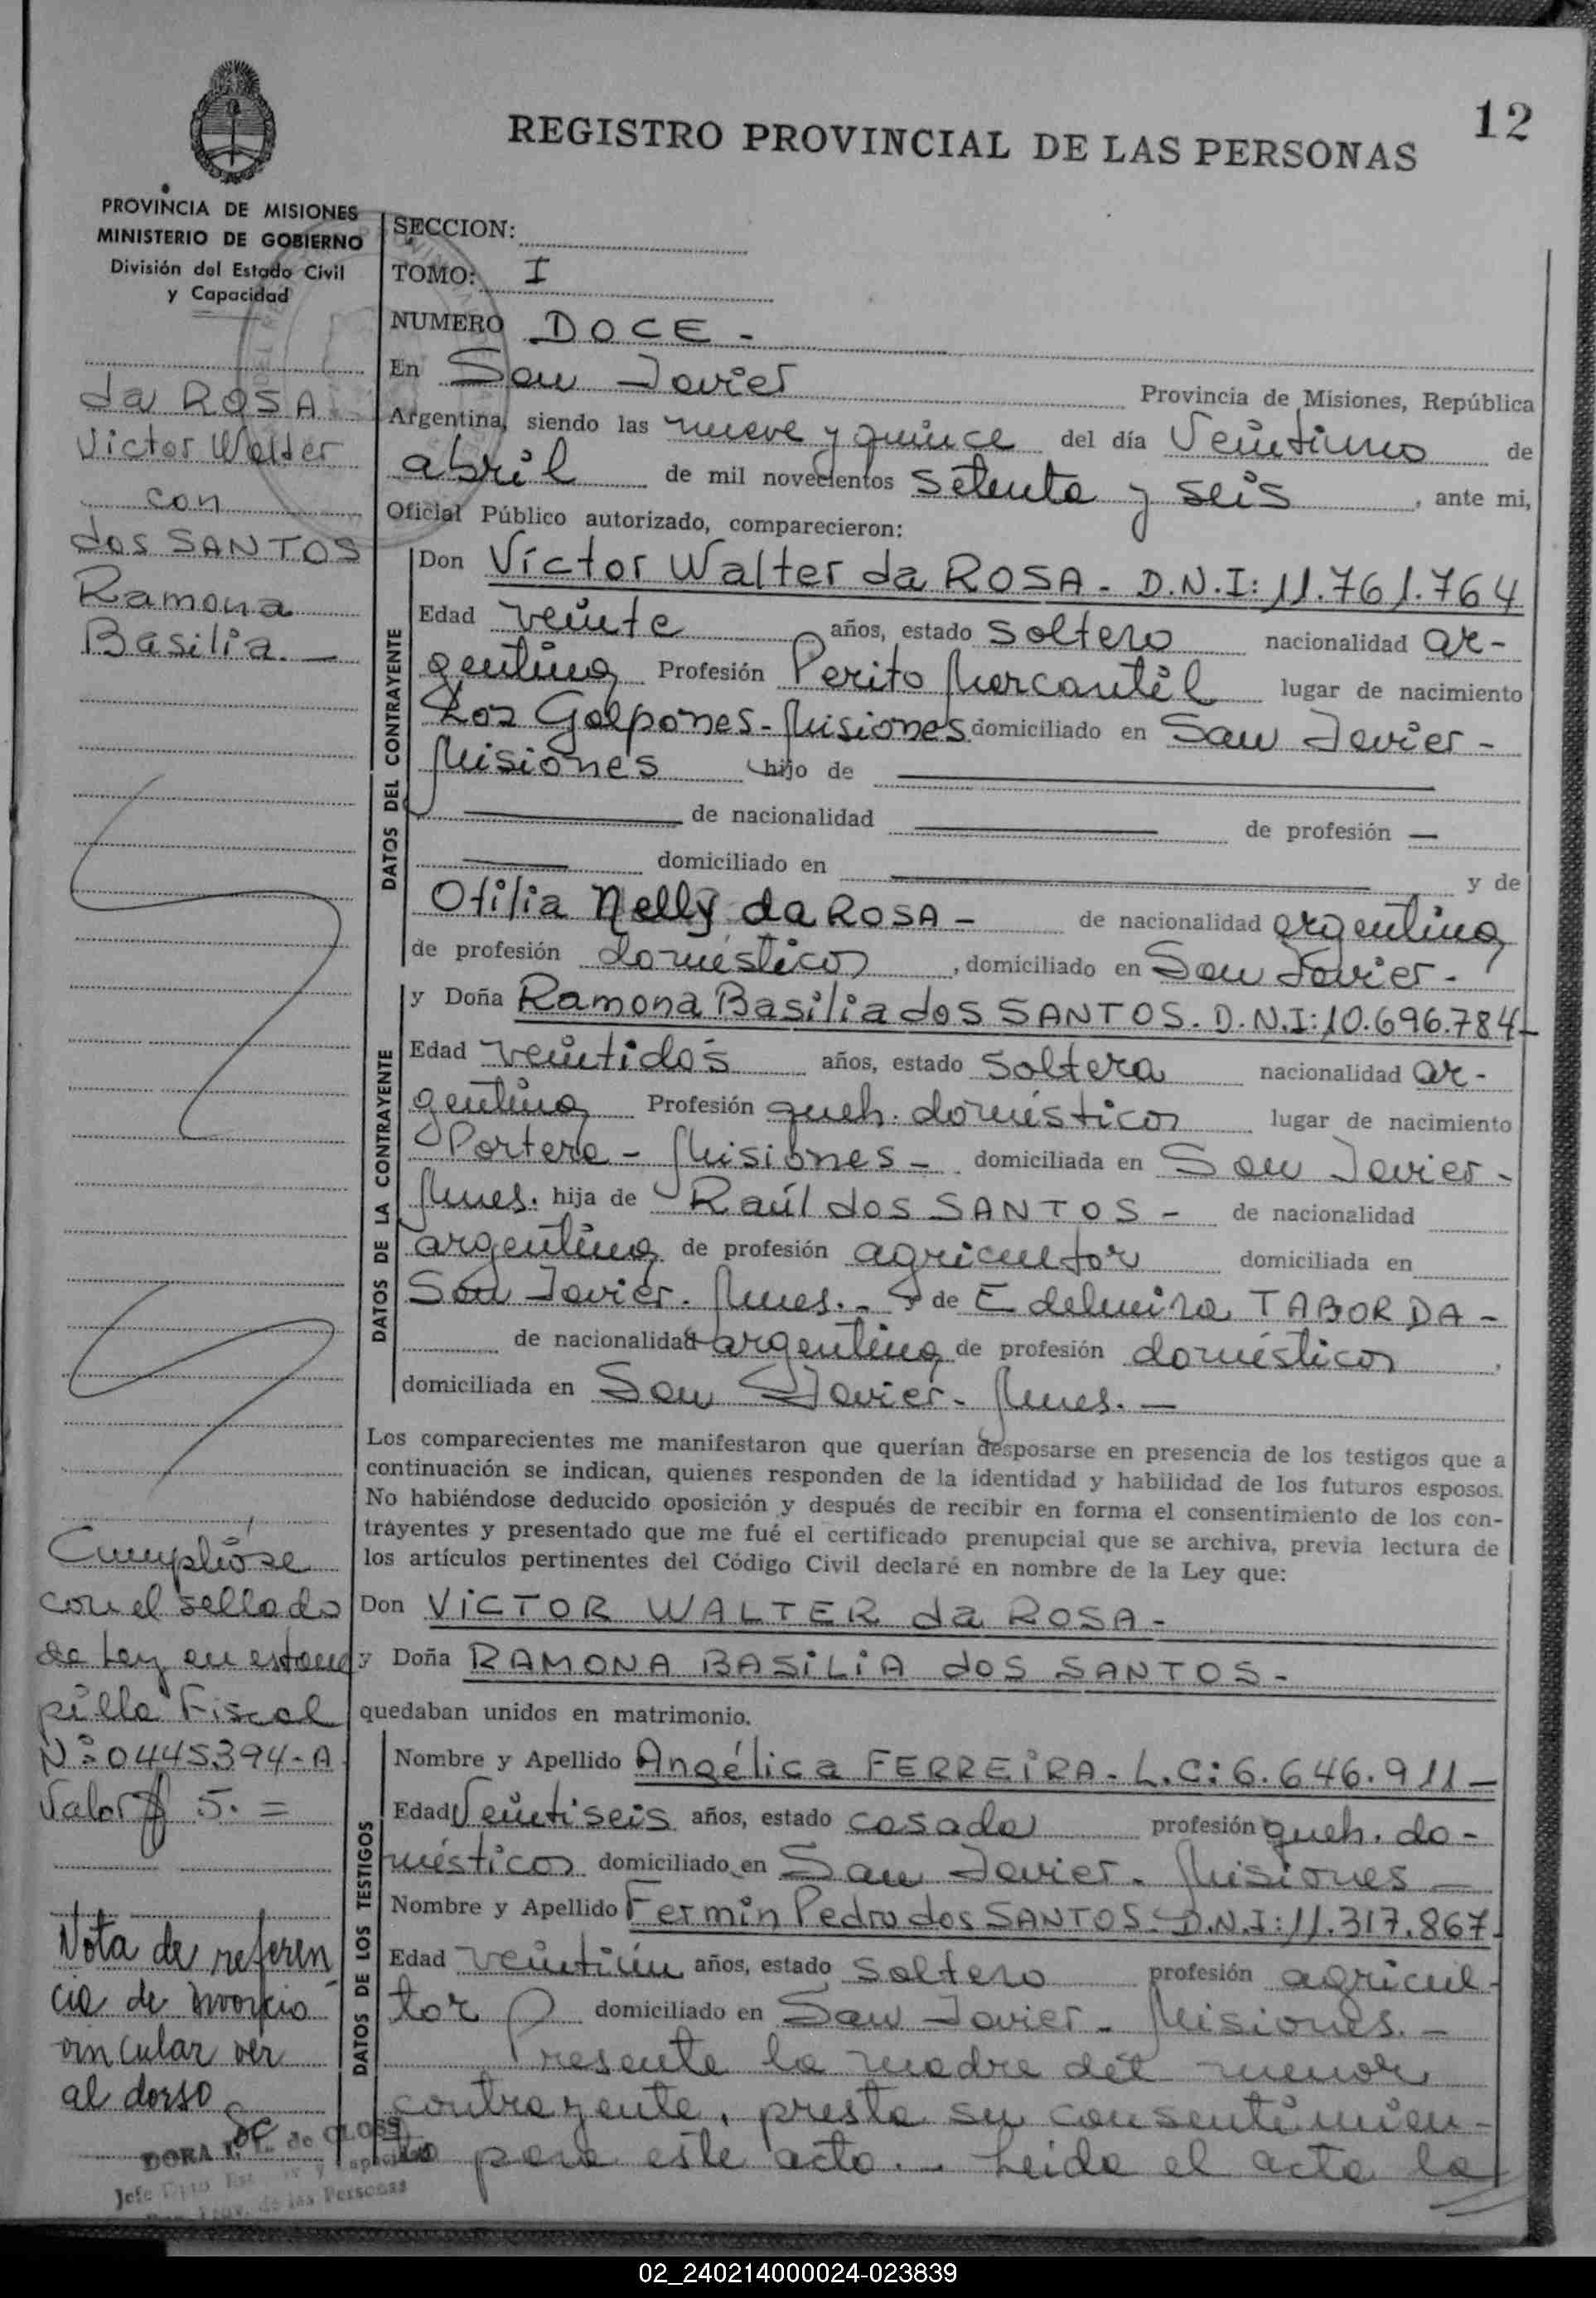 12
REGISTRO PROVINCIAL DE LAS PERSONAS
PROVINCIA DE MISIONES
MINISTERIO DE GOBIERNO
División del Estado Civil
y Capacidad
da ROSA
Victor Walter
con
dos SANTOS
Ramona
Basilia. —
Cumplióse
con el sellado
de Ley en estam
pilla Fiscal
Nº 0445394-A
Valor $ 5. =
Nota de referen
cia de divorcio
vincular ver
al dorso
DORA de
Jefe
de las Personas
SECCION:
TOMO: I
NUMERO DOCE -
En San Javier Provincia de Misiones, República
Argentina, siendo las nueve y quince del día Veintiuno de
abril de mil novecientos setenta y seis, ante mi,
Oficial Público autorizado, comparecieron:
DATOS DEL CONTRAYENTE
Don Víctor Walter da ROSA - D.N.I: 11.761.764
Edad veinte años, estado soltero nacionalidad ar-
gentina Profesión Perito Mercantil lugar de nacimiento
Los Galpones - Misiones domiciliado en San Javier -
Misiones hijo de
de nacionalidad de profesión —
domiciliado en y de
Otilia Nelly da ROSA - de nacionalidad argentina
de profesión domésticos, domiciliado en San Javier -
DATOS DE LA CONTRAYENTE
y Doña Ramona Basilia dos SANTOS. D.N.I: 10.696.784-
Edad veintidós años, estado soltera nacionalidad ar-
gentina Profesión queh. domésticos lugar de nacimiento
Portera - Misiones - domiciliada en San Javier -
Mnes. hija de Raúl dos SANTOS - de nacionalidad
argentina de profesión agricultor domiciliada en
San Javier. Mnes. - y de Edelmira TABORDA -
de nacionalidad argentina de profesión domésticos,
domiciliada en San Javier - Mnes. —
Los comparecientes me manifestaron que querían desposarse en presencia de los testigos que a
continuación se indican, quienes responden de la identidad y habilidad de los futuros esposos.
No habiéndose deducido oposición y después de recibir en forma el consentimiento de los con-
trayentes y presentado que me fué el certificado prenupcial que se archiva, previa lectura de
los artículos pertinentes del Código Civil declaré en nombre de la Ley que:
Don VICTOR WALTER da ROSA -
y Doña RAMONA BASILIA dOS SANTOS -
quedaban unidos en matrimonio.
DATOS DE LOS TESTIGOS
Nombre y Apellido Angélica FERREIRA - L.C: 6.646.911 —
Edad Veintiseis años, estado casada profesión queh. do-
mésticos domiciliado en San Javier - Misiones —
Nombre y Apellido Fermin Pedro dos SANTOS - D.N.I: 11.317.867-
Edad veintiún años, estado soltero profesión agricul-
tor domiciliado en San Javier - Misiones. -
Presente la madre del menor
contrayente, presta su consentimien-
to para este acto. - Leida el acta la
02_240214000024-023839